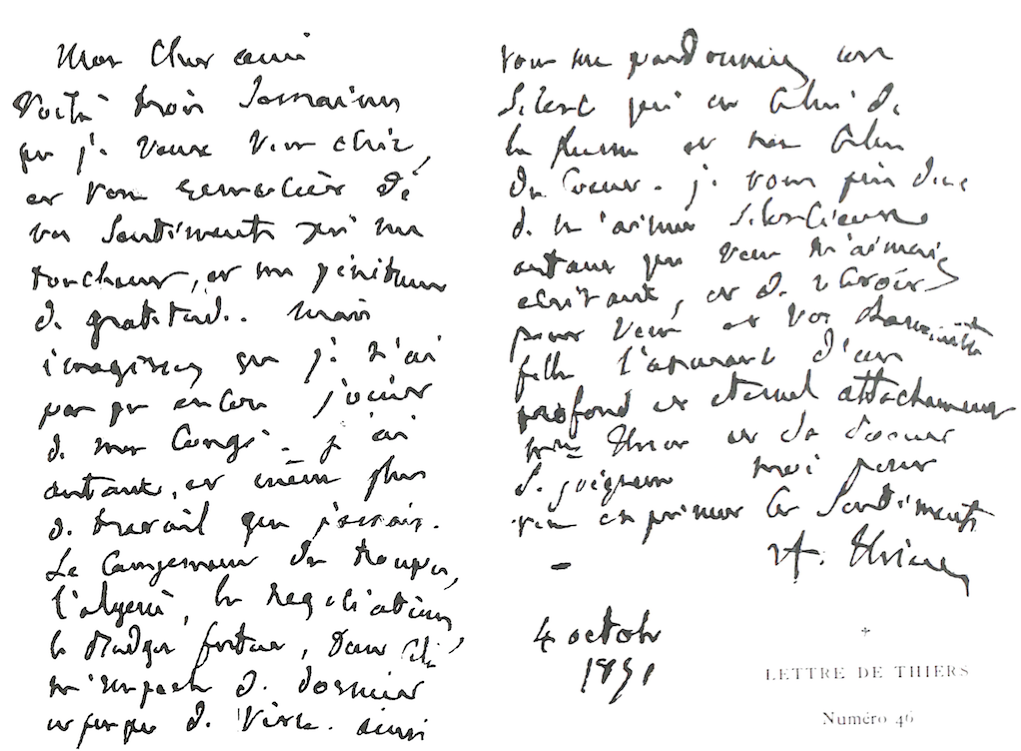 Mon cher ami
Voilà trois semaines
que je veux vous écrire,
et vous remercier de
vos sentiments qui me
touchent, et me pénètrent
de gratitude. Mais
imaginez que je n'ai
pas pu encore jouir
de mon congé. J'ai
autant, et même plus
de travail que jamais.
Le campement des troupes,
l'algérie, les négociations,
le budget futur, tout cela
m'empêche de dormir
et presque de vivre. ainsi
vous me pardonnerez un
silence qui est celui de
la plume et non celui
du coeur. je vous prie donc
de m'aimer silencieux
autant que vous m'aimiez
écrivant, et de recevoir
pour vous et vos
fille l'assurance d'un
profond et éternel attachement
mme Thiers et sa
se joignent moi pour
vous exprimer ces sentiments
A. Thiers
4 octobre
LETTRE DE THIERS
Numéro 46